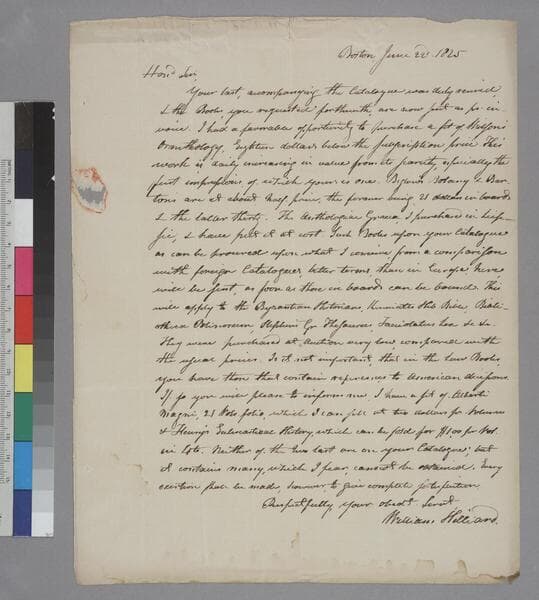 Boston June 22. 1825
Hond. Sir,
Your last, accompanying the Catalogue was duly receivd,
& the Books, you requested forthwith, are now put as pr in-
voice. I had a favorable opportunity to purchase a set of Wilson's
Ornithology, Eighteen dollars below the subscription price. This
work is daily increasing in value from its scarcity, especially the
first impressions, of which yours is one. Bigelow's Botany & Bar-
tons are at about half price, the former being 21 dollars in boards
& the latter thirty. The Anthologia Graeca I purchase in Leip-
sic, & have put it at cost. Such Books upon your Catalogue
as can be procured upon what I conceive from a comparison
with foreign Catalogues, better terms than in Europe here
will be sent, as soon as those in boards can be bound. This
will apply to the Byzantine Historians, Kennicotts Heb. Bible, Biblio-
theca Stephens Gr. Thesaurus, Facciolatus Lex &c &c.
They were purchased at Auction very low, compared with
the usual prices. Is it not important, that in the Law Books,
you have those that contain references to American decisions.
If so you will please to inform me. I have a set of Alberti
Magni, 21 Vols folio, which I can sell at two dollars pr Volume
& Fleury's Ecclesiastical History, which can be sold for $1.00 pr Vol.
in lots. Neither of the two last are on your Catalogue; but
it contains many, which I fear, cannot be obtained. Every
exertion shall be made, however, to give complete satisfaction.
Respectfully, your obedt. Servt.
William Hilliard.